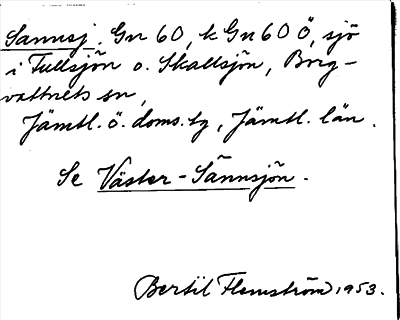 Sannsj. Gn 60, k Gn 60 Ö, sjö
i Fullsjön o. Skallsjön, Borg-
vattnets sn,
Jämtl. ö. doms. tg, Jämtl. län.
Se Väster-Sännsjön.
Bertil Flemström 1953.